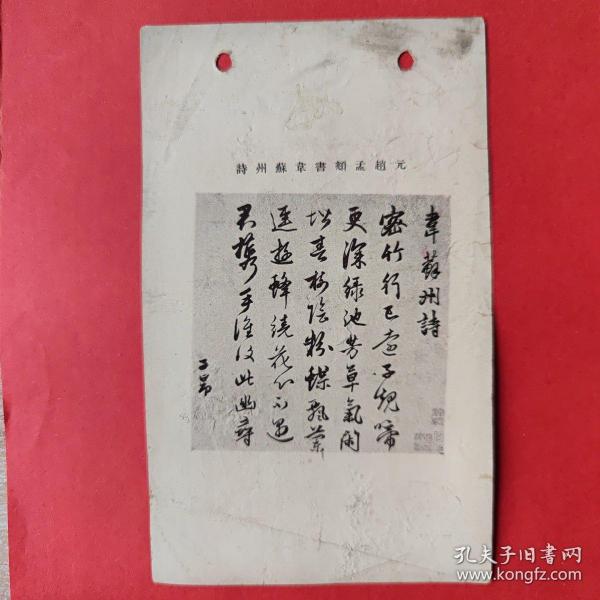 元趙孟頫書韋蘇州詩
韋蘇州詩
密竹行已遠子規啼
更深綠池芳草氣閑
春樹陰粉蝶飄蘭
逕遊蜂繞花心不遇
君攜手誰復此幽尋
子昂
孔夫子旧书网
www.kongfz.com